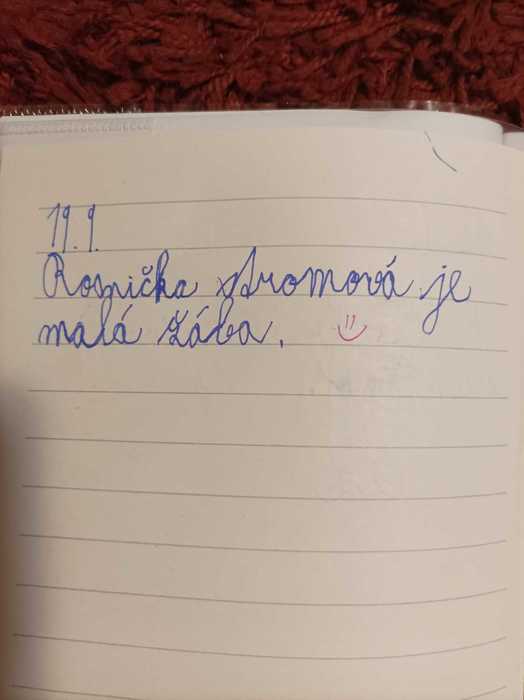 19. 9.
Rosnička stromová je
malá žába.